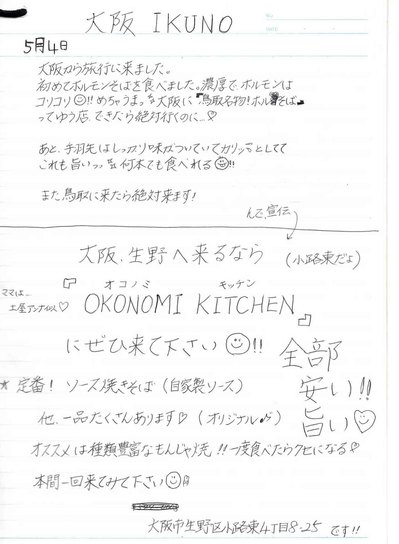 大阪 IKUNO
NO.
DATE
5月4日
大阪から旅行に来ました。
初めてホルモンそばを食べました。濃厚で、ホルモンは
コリコリ!! めちゃうまっ 大阪に『鳥取名物!ホルそば』
ってゆう店、できたら絶対行くのに…♡
あと、手羽先はしっかり味がついていてカリッとしてて
これも旨いっ 何本でも食べれる!!
また鳥取に来たら絶対来ます!
んで、宣伝
大阪、生野へ来るなら (小路東だよ)
ママは…
土屋アンナ似♡
オコノミ キッチン
『OKONOMI KITCHEN』
にぜひ来て下さい!!
全部
安い!!
旨い♡
★ 定番! ソース焼きそば (自家製ソース)
他、一品たくさんあります♡ (オリジナル♪)
オススメは種類豊富なもんじゃ焼!! 一度食べたらクセになる♡
本間一回来てみて下さい
大阪市生野区小路東4丁目8-25 です!!